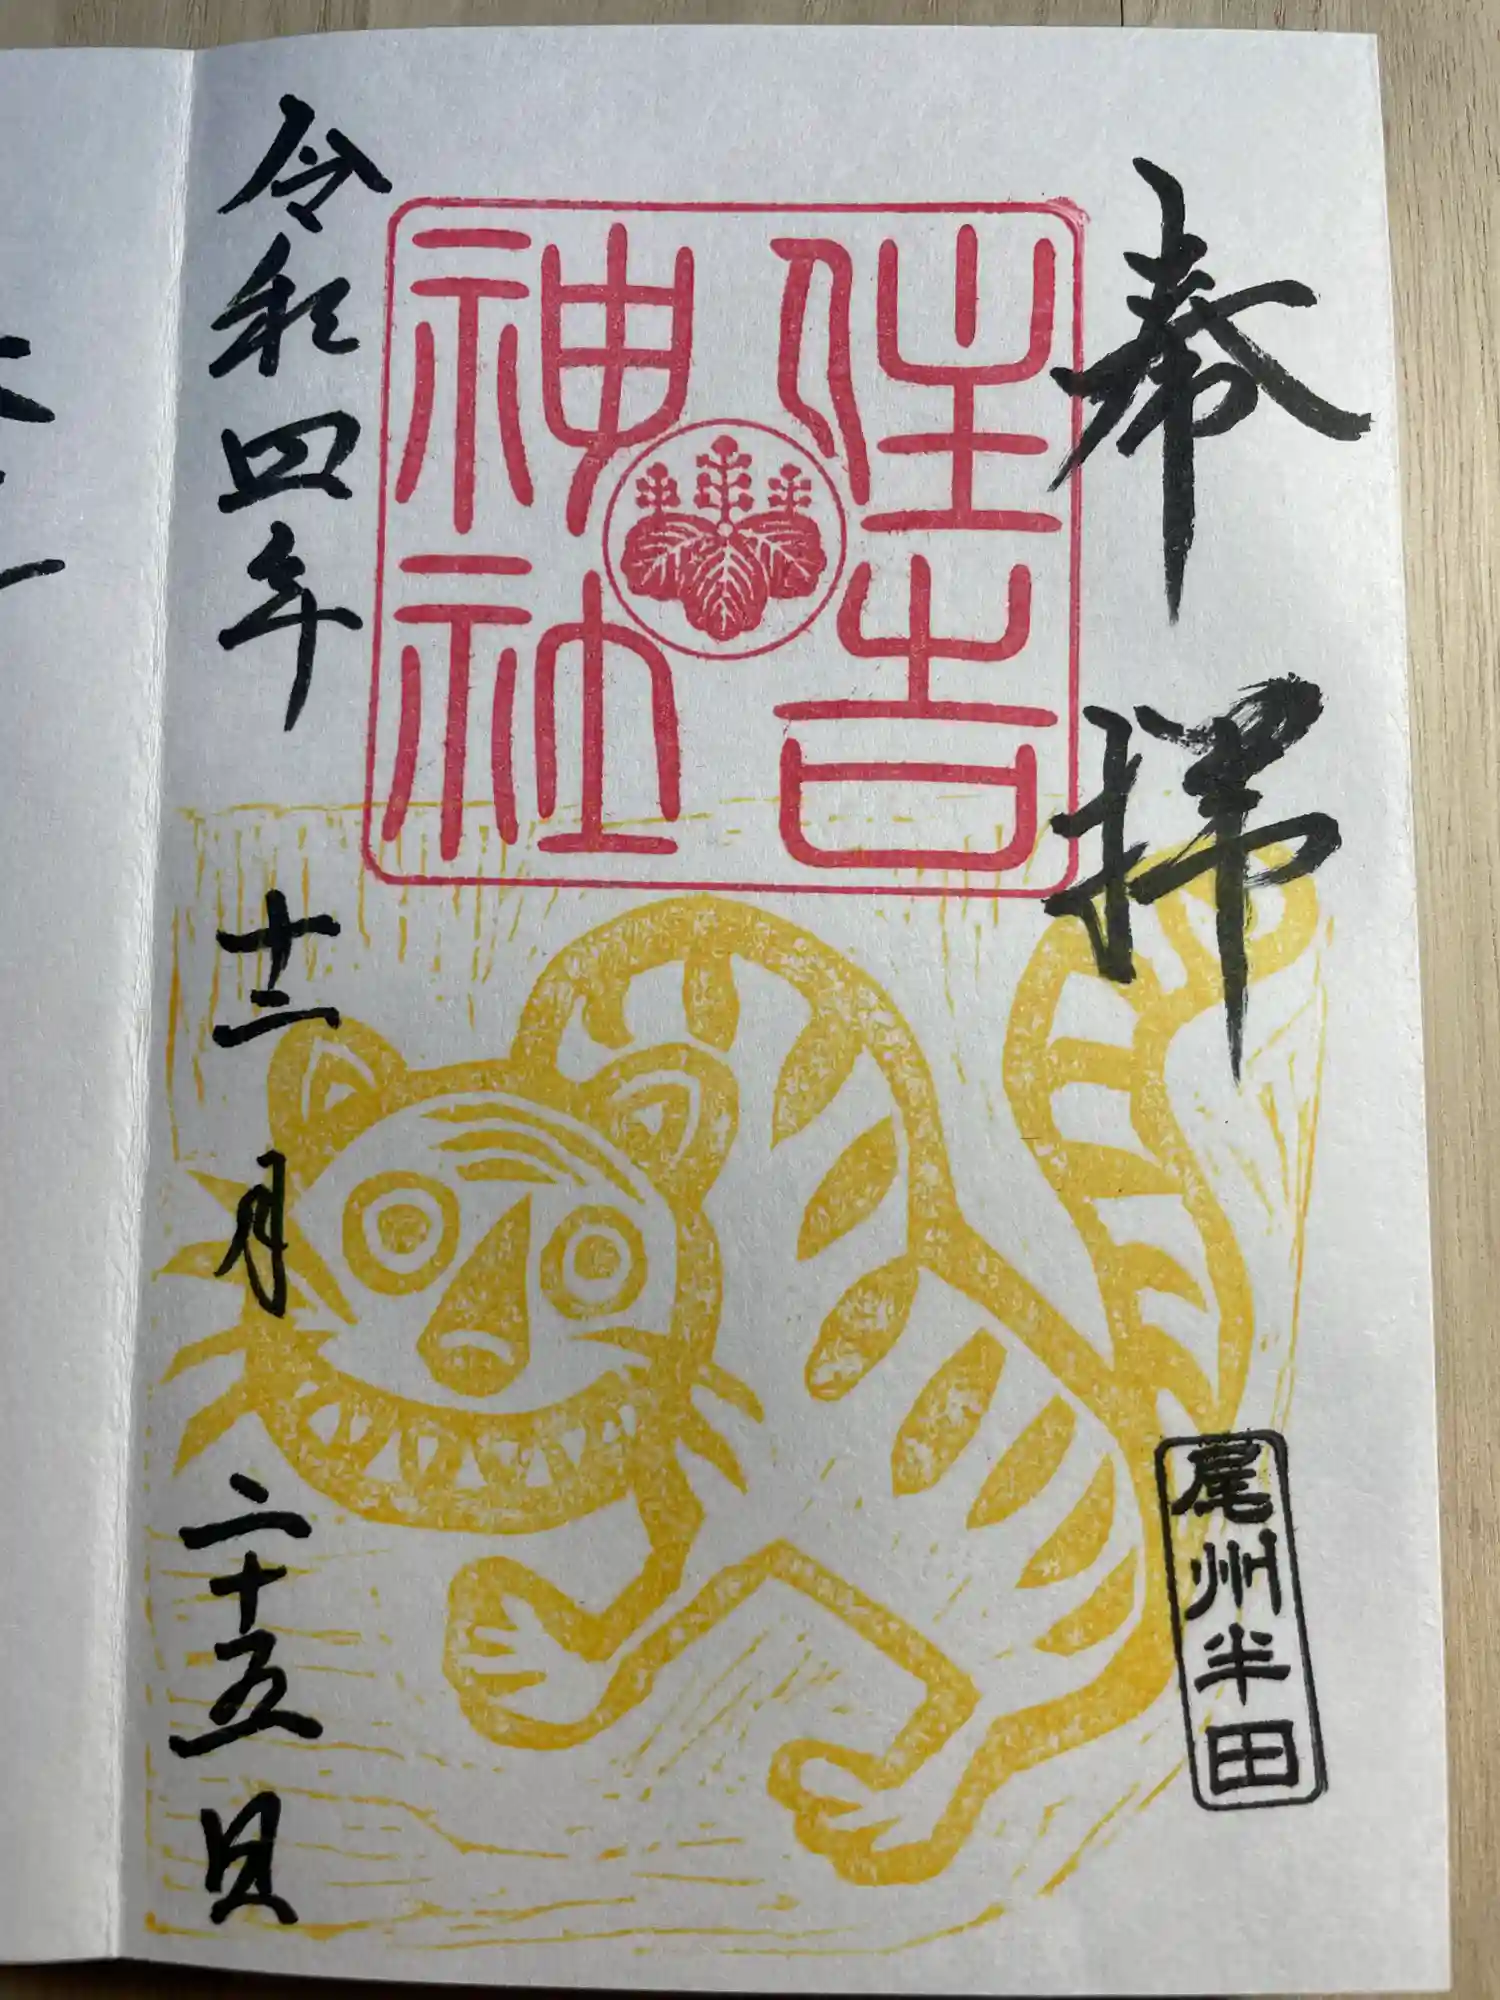 奉拝
尾州半田
住吉
神社
令和四年十二月二十五日